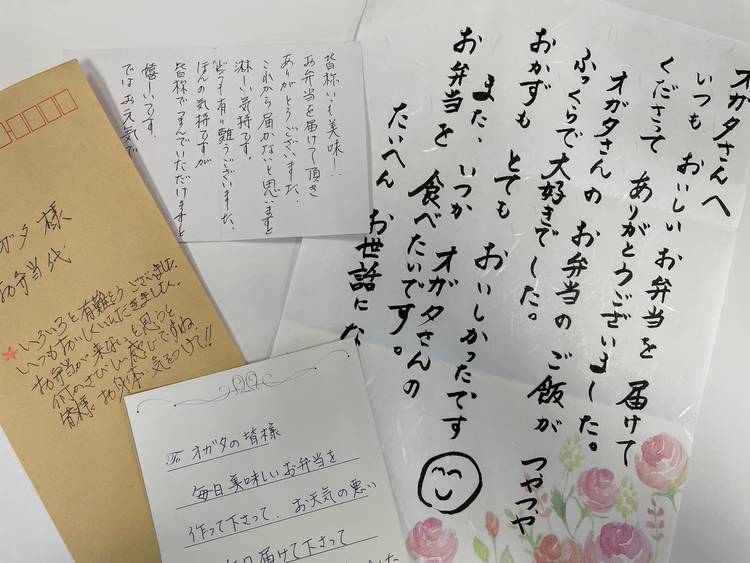 オガタさんへ
いつも おいしいお弁当を 届けて
くださって ありがとうございました。
オガタさんの お弁当の ご飯が つやつや
ふっくらで大好きでした。
おかずも とても おいしかったです
また、いつか オガタさんの
お弁当を 食べたいです。
たいへん お世話にな
美味しい
お弁当を届けて頂き
ありがとうございました、
これから届かないと思いますと
淋しい気持です。
どうも有り難うございました、
ほんの気持ですが
んでいただけますと
嬉しいです。
ではお元気で
オガタ様
お弁当代
いろいろと有難とうございました。
いつもおいしくいただきました。
お弁当が来ないと思うと
何かさびしい感じですね
皆様 お身体 気をつけて!!
To オガタの皆様
毎日美味しいお弁当を
作って下さって、お天気の悪い
届けて下さって